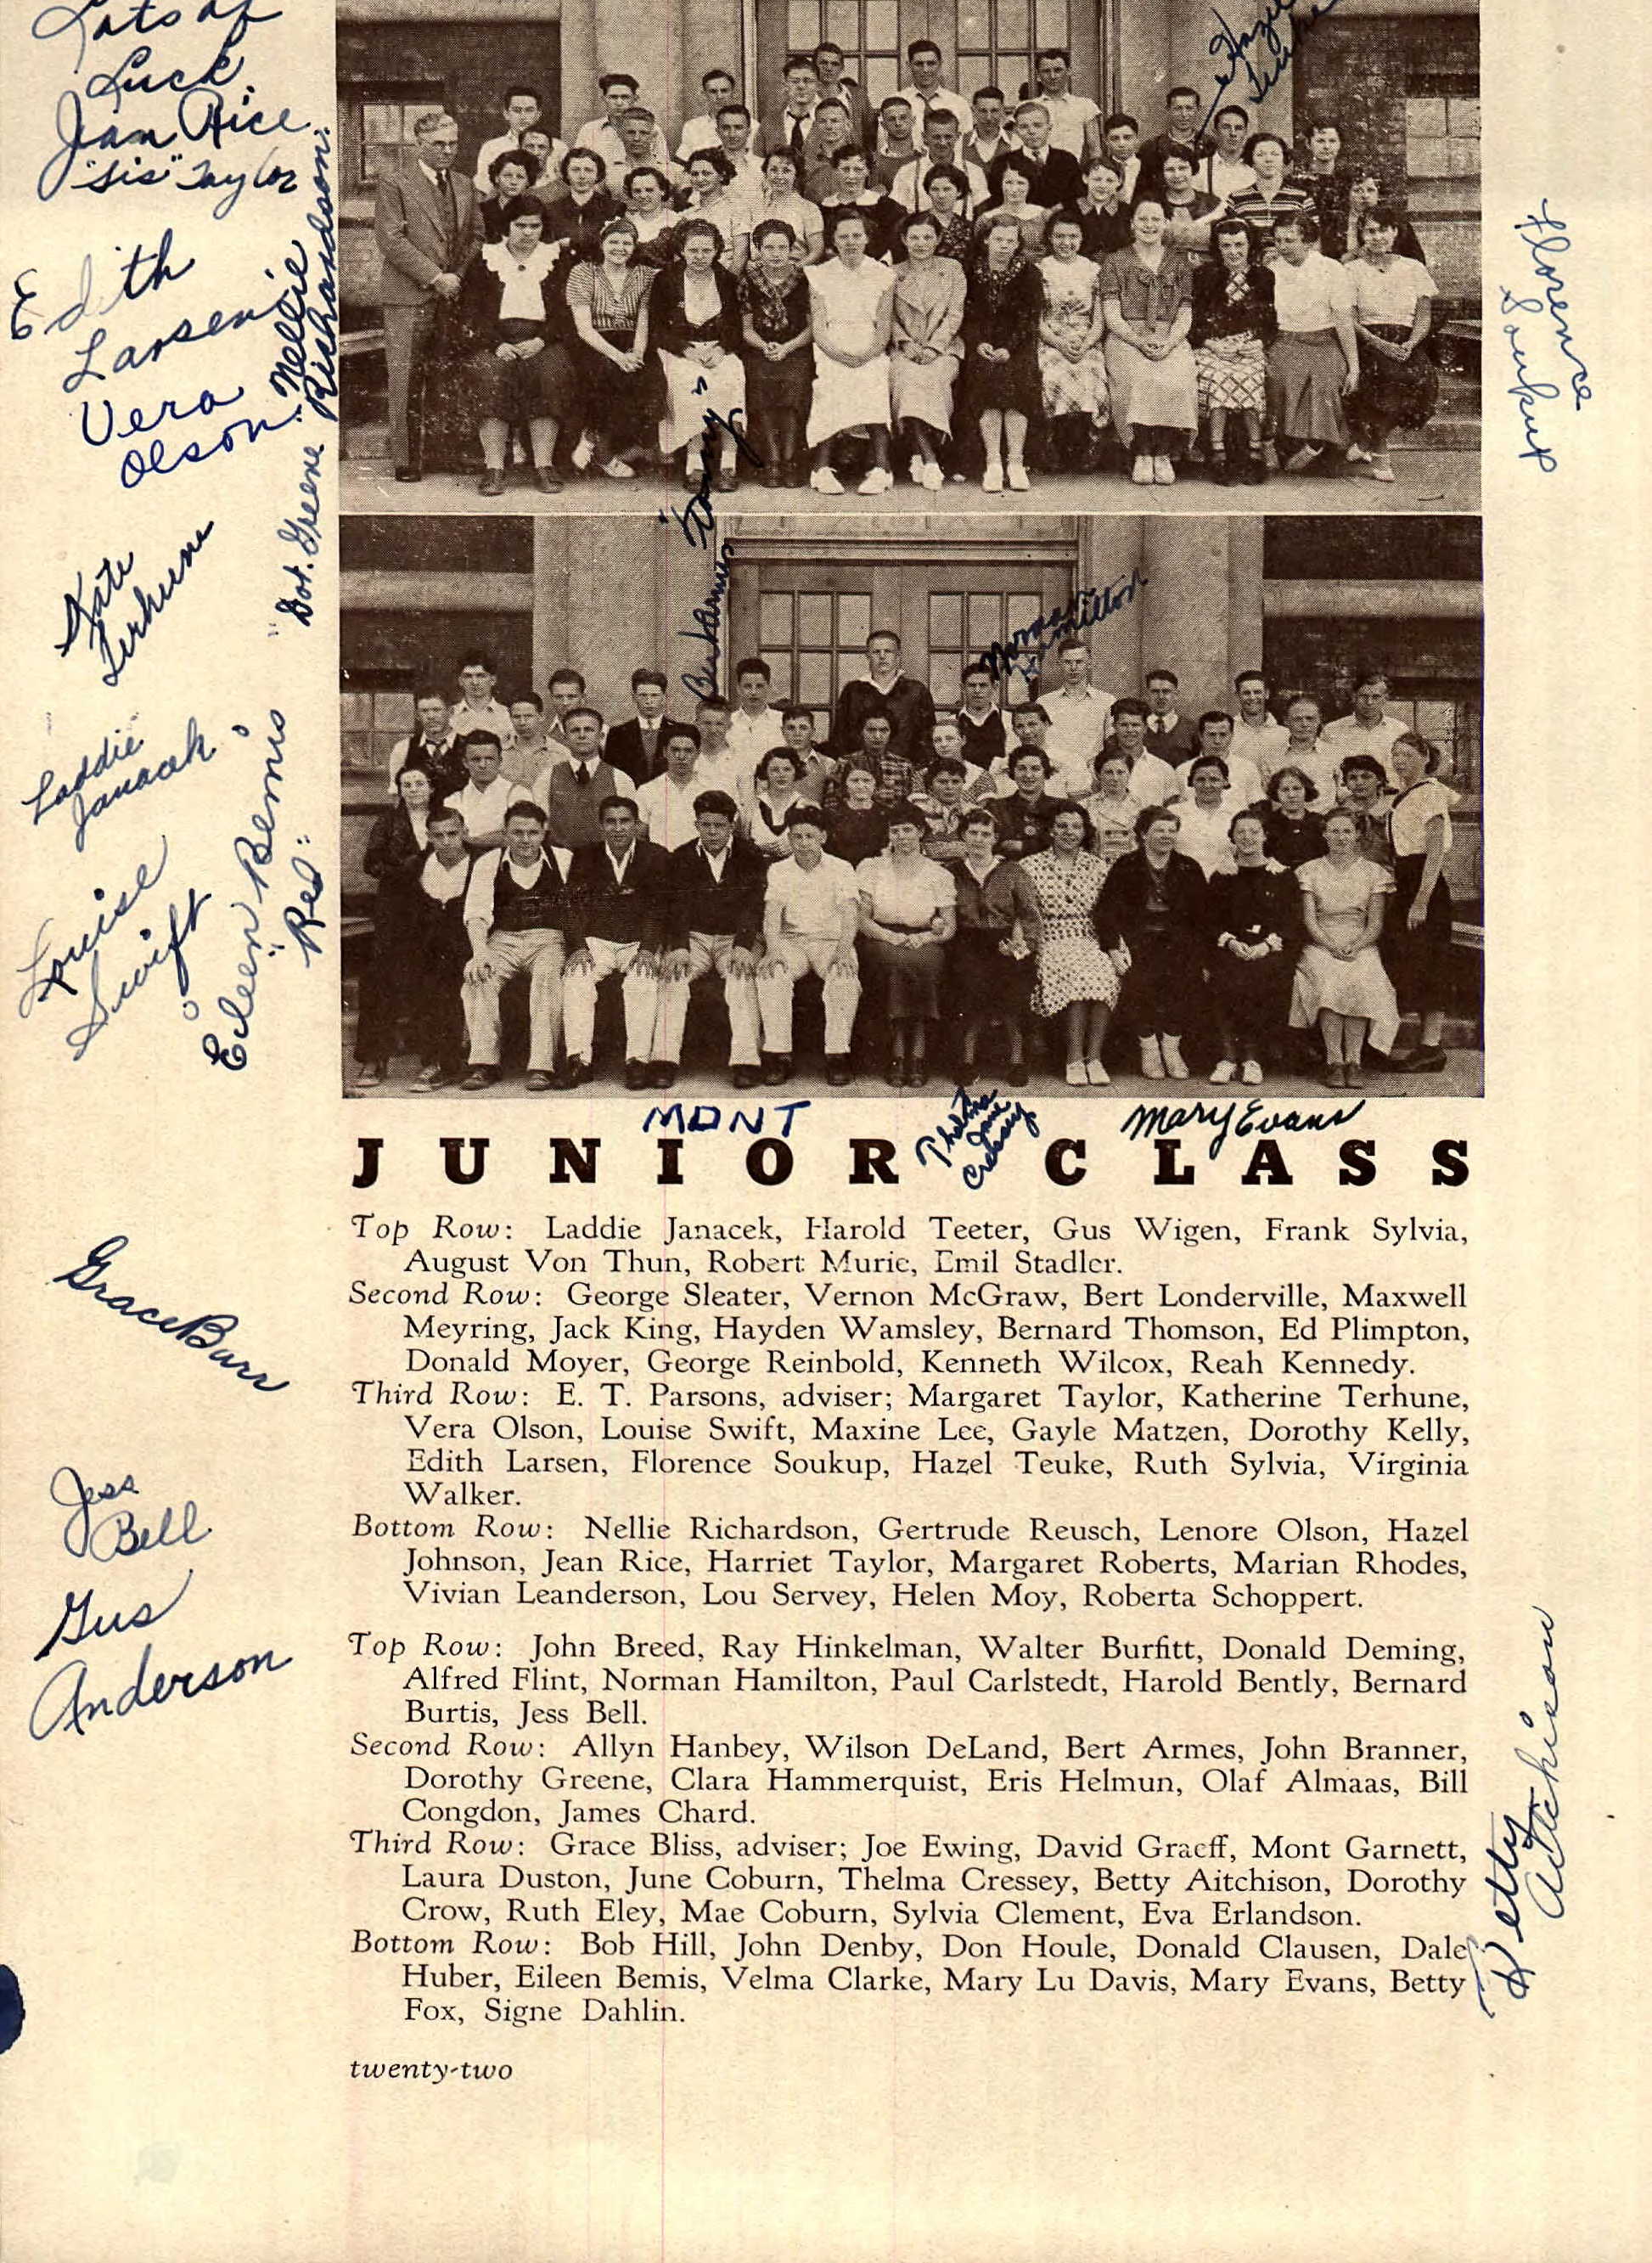 Lots of
Luck.
Jean Rice
"Sis" Taylor
Edith
Larsen
Vera
Olson
"Nellie
Richardson"
"Dot" Greene
Kate
Terhune
Laddie
Janacek
Louise
Swift
"Eileen Bemis"
"Red"
Grace Burr
Jess
Bell
Gus
Anderson
Hazel
Florence
Soukup
Bert Armes
Norman
Hamilton
MONT
Thelma
Jane
Cressey
Mary Evans
JUNIOR CLASS
Top Row: Laddie Janacek, Harold Teeter, Gus Wigen, Frank Sylvia,
August Von Thun, Robert Murie, Emil Stadler.
Second Row: George Sleater, Vernon McGraw, Bert Londerville, Maxwell
Meyring, Jack King, Hayden Wamsley, Bernard Thomson, Ed Plimpton,
Donald Moyer, George Reinbold, Kenneth Wilcox, Reah Kennedy.
Third Row: E. T. Parsons, adviser; Margaret Taylor, Katherine Terhune,
Vera Olson, Louise Swift, Maxine Lee, Gayle Matzen, Dorothy Kelly,
Edith Larsen, Florence Soukup, Hazel Teuke, Ruth Sylvia, Virginia
Walker.
Bottom Row: Nellie Richardson, Gertrude Reusch, Lenore Olson, Hazel
Johnson, Jean Rice, Harriet Taylor, Margaret Roberts, Marian Rhodes,
Vivian Leanderson, Lou Servey, Helen Moy, Roberta Schoppert.
Top Row: John Breed, Ray Hinkelman, Walter Burfitt, Donald Deming,
Alfred Flint, Norman Hamilton, Paul Carlstedt, Harold Bently, Bernard
Burtis, Jess Bell.
Second Row: Allyn Hanbey, Wilson DeLand, Bert Armes, John Branner,
Dorothy Greene, Clara Hammerquist, Eris Helmun, Olaf Almaas, Bill
Congdon, James Chard.
Third Row: Grace Bliss, adviser; Joe Ewing, David Graeff, Mont Garnett,
Laura Duston, June Coburn, Thelma Cressey, Betty Aitchison, Dorothy
Crow, Ruth Eley, Mae Coburn, Sylvia Clement, Eva Erlandson.
Bottom Row: Bob Hill, John Denby, Don Houle, Donald Clausen, Dale
Huber, Eileen Bemis, Velma Clarke, Mary Lu Davis, Mary Evans, Betty
Fox, Signe Dahlin.
Betty
Aitchison
twenty-two